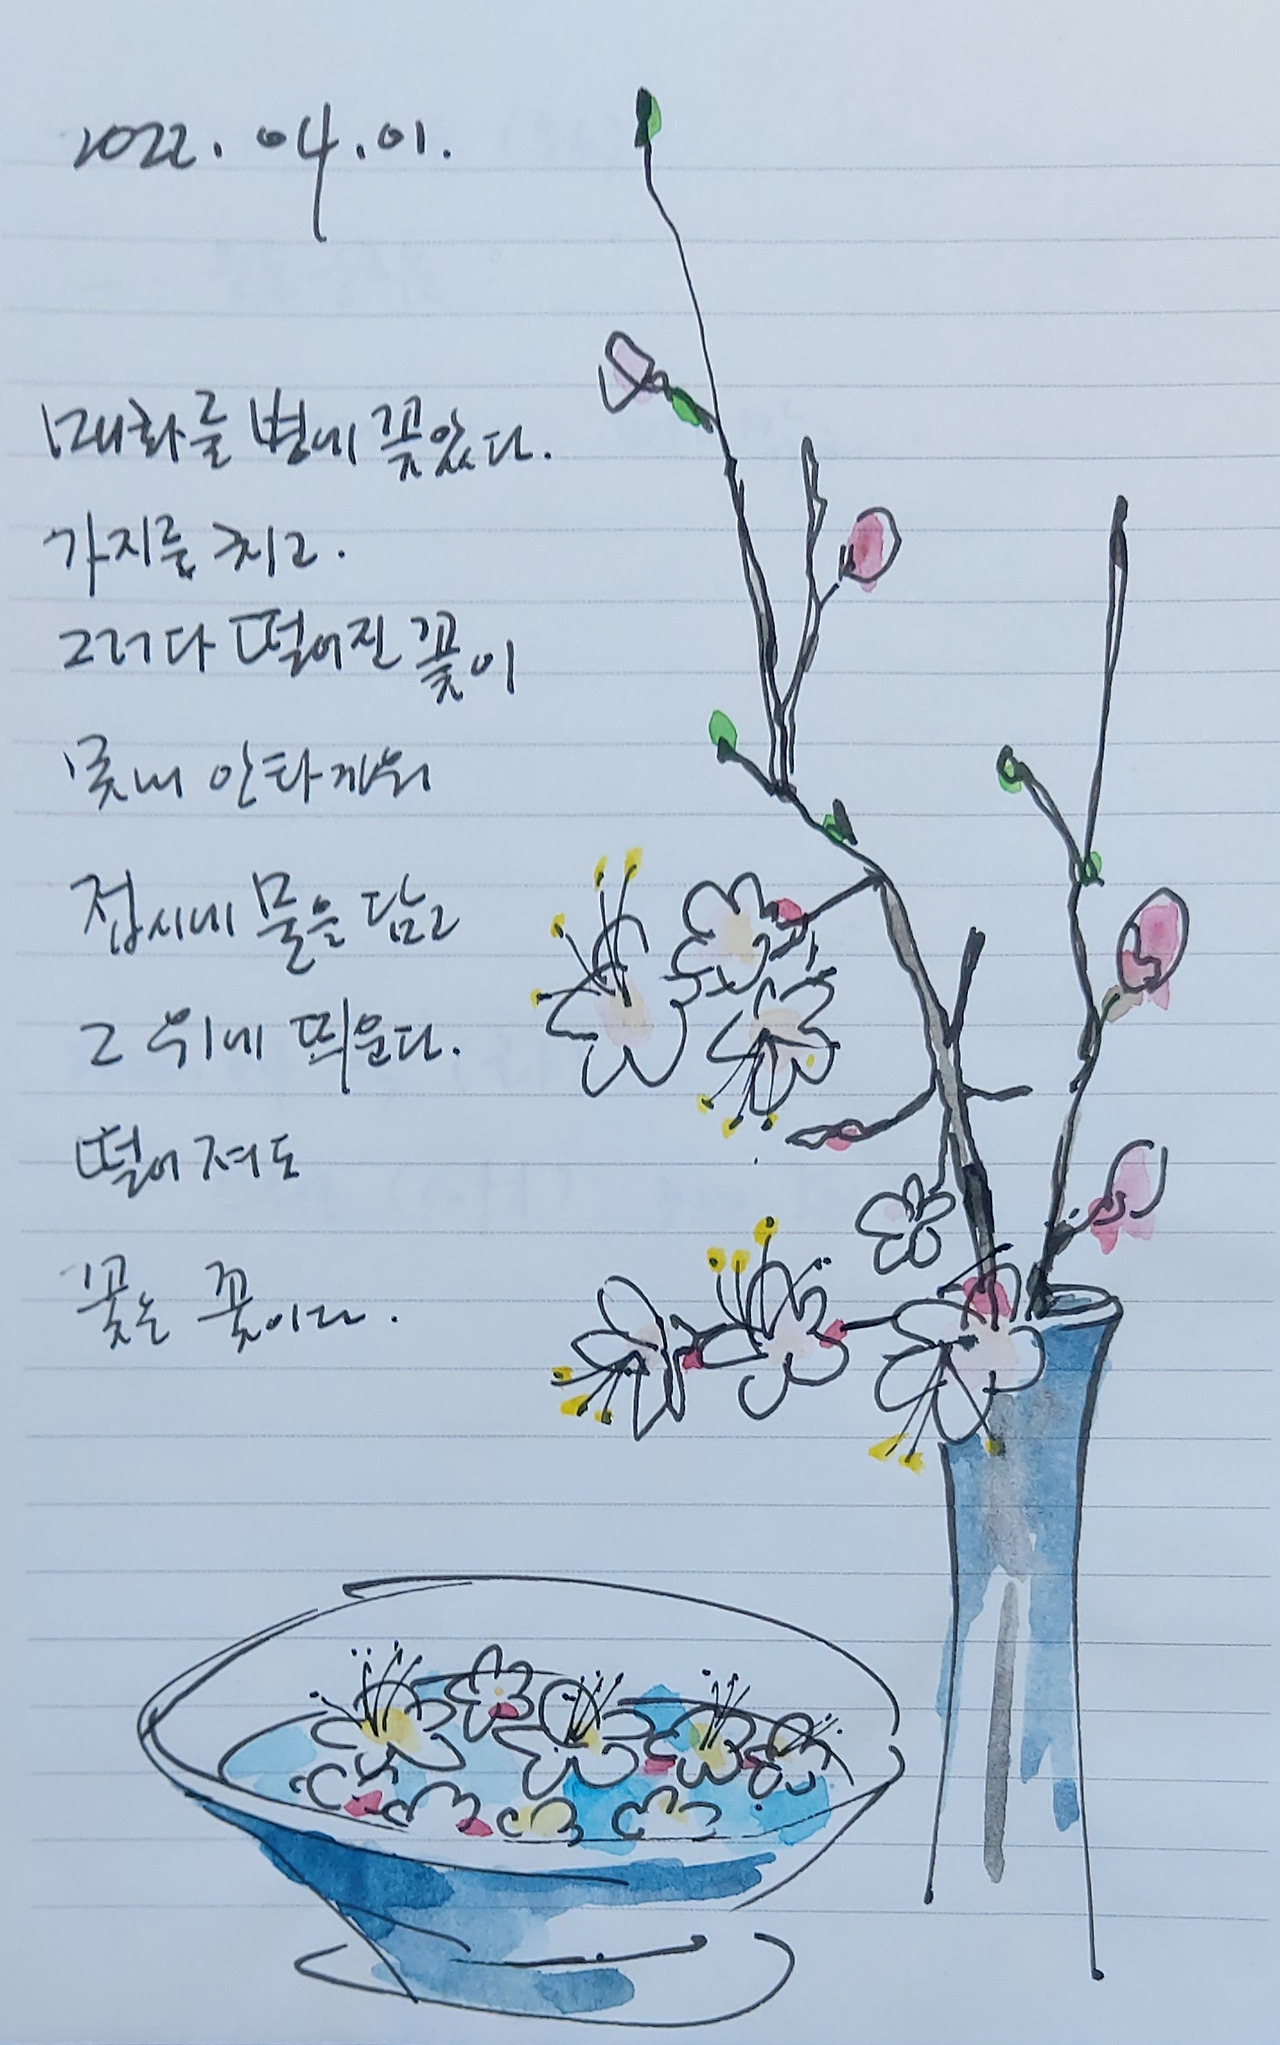 2022. 04. 01.
매화를 병에 꽂았다.
가지를 치고.
그러다 떨어진 꽃이
못내 안타까워
접시에 물을 담고
그 위에 띄운다.
떨어져도
꽃은 꽃이다.